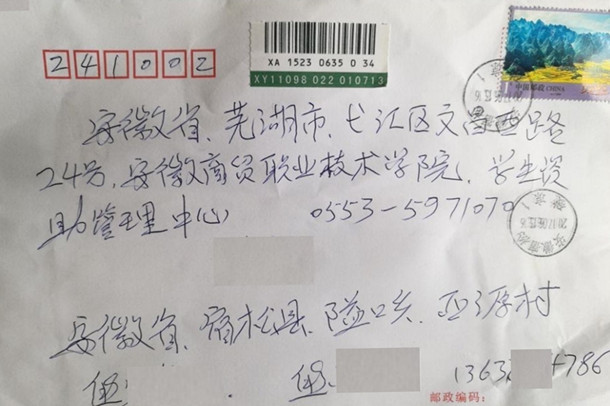 XA 1523 0635 0 34
XY11098 022 010713
中国邮政 CHINA
241002
安徽省、芜湖市、弋江区文昌西路
24号，安徽商贸职业技术学院、学生资
助管理中心 0553-5971070
安徽省、宿松县、隘口乡、
村
1363 4786
邮政编码：